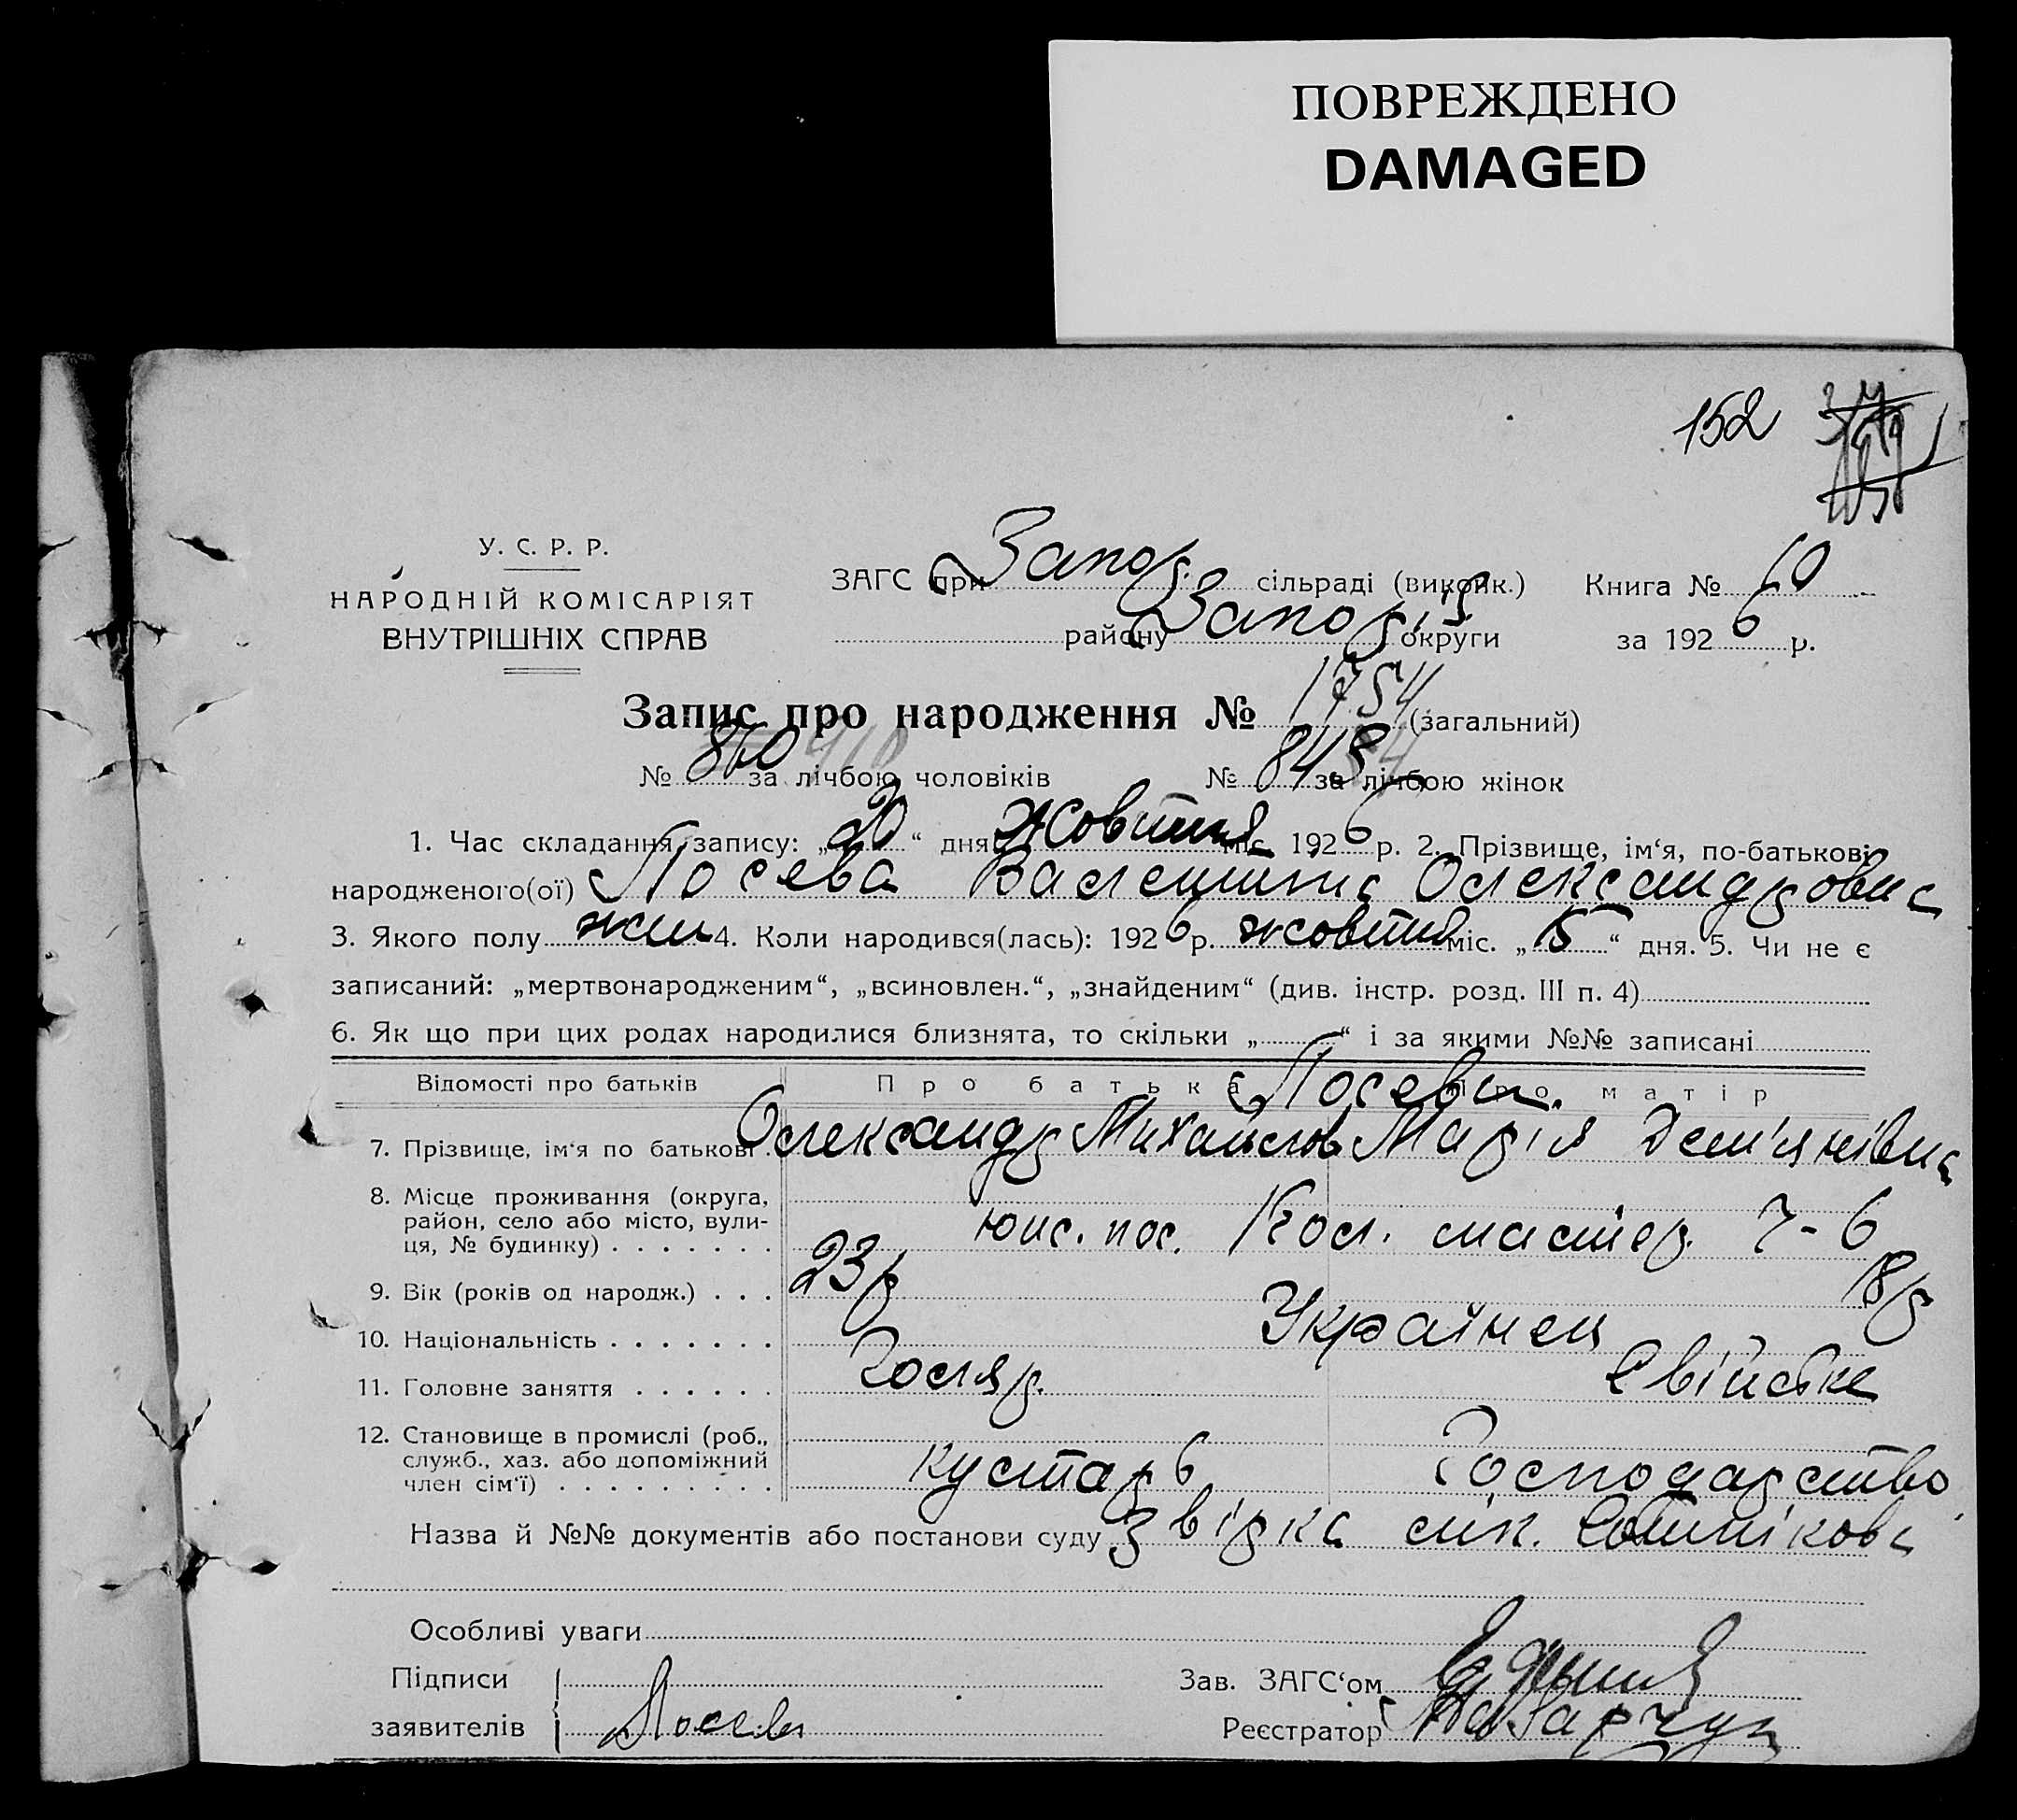 ПОВРЕЖДЕНО
DAMAGED
152
У. С. Р. Р.
НАРОДНІЙ КОМІСАРІЯТ
ВНУТРІШНІХ СПРАВ
ЗАГС при Запор. сільраді (викойк.) Книга № 60
району Запоріз округи за 1926 р.
Запис про народження № 1754 (загальний)
№ 860 за лічбою чоловіків № 848 за лічбою жінок
1. Час складання запису: „20“ дня жовтня міс. 1926 р. 2. Прізвище, ім‘я, по-батькові
народженого(ої) Лосева Валентина Олександровна
3. Якого полу жін 4. Коли народився(лась): 1926 р. жовтня міс. „15“ дня. 5. Чи не є
записаний: „мертвонародженим“, „всиновлен.“, „знайденим“ (див. інстр. розд. III п. 4)
6. Як що при цих родах народилися близнята, то скільки „ “ і за якими №№ записані
Відомості про батьків Про батька Про матір
Лосеви.
7. Прізвище, ім‘я по батькові Олександр Михайлов Марія Дем'янівна
8. Місце проживання (округа,
район, село або місто, вули-
ця, № будинку) . . . . . . . юж. пос. Кол. мастер. 7-6
9. Вік (років од народж.) . . . 23 р 18 р
10. Національність . . . . . . . Українец
11. Головне заняття . . . . . . Столяр. Свійське
12. Становище в промислі (роб.,
служб., хаз. або допоміжний
член сім‘ї) . . . . . . . . . кустарь Господарство
Назва й №№ документів або постанови суду Звірка лік.
Особливі уваги
Підписи Зав. ЗАГС‘ом
заявителів Лосев Реєстратор